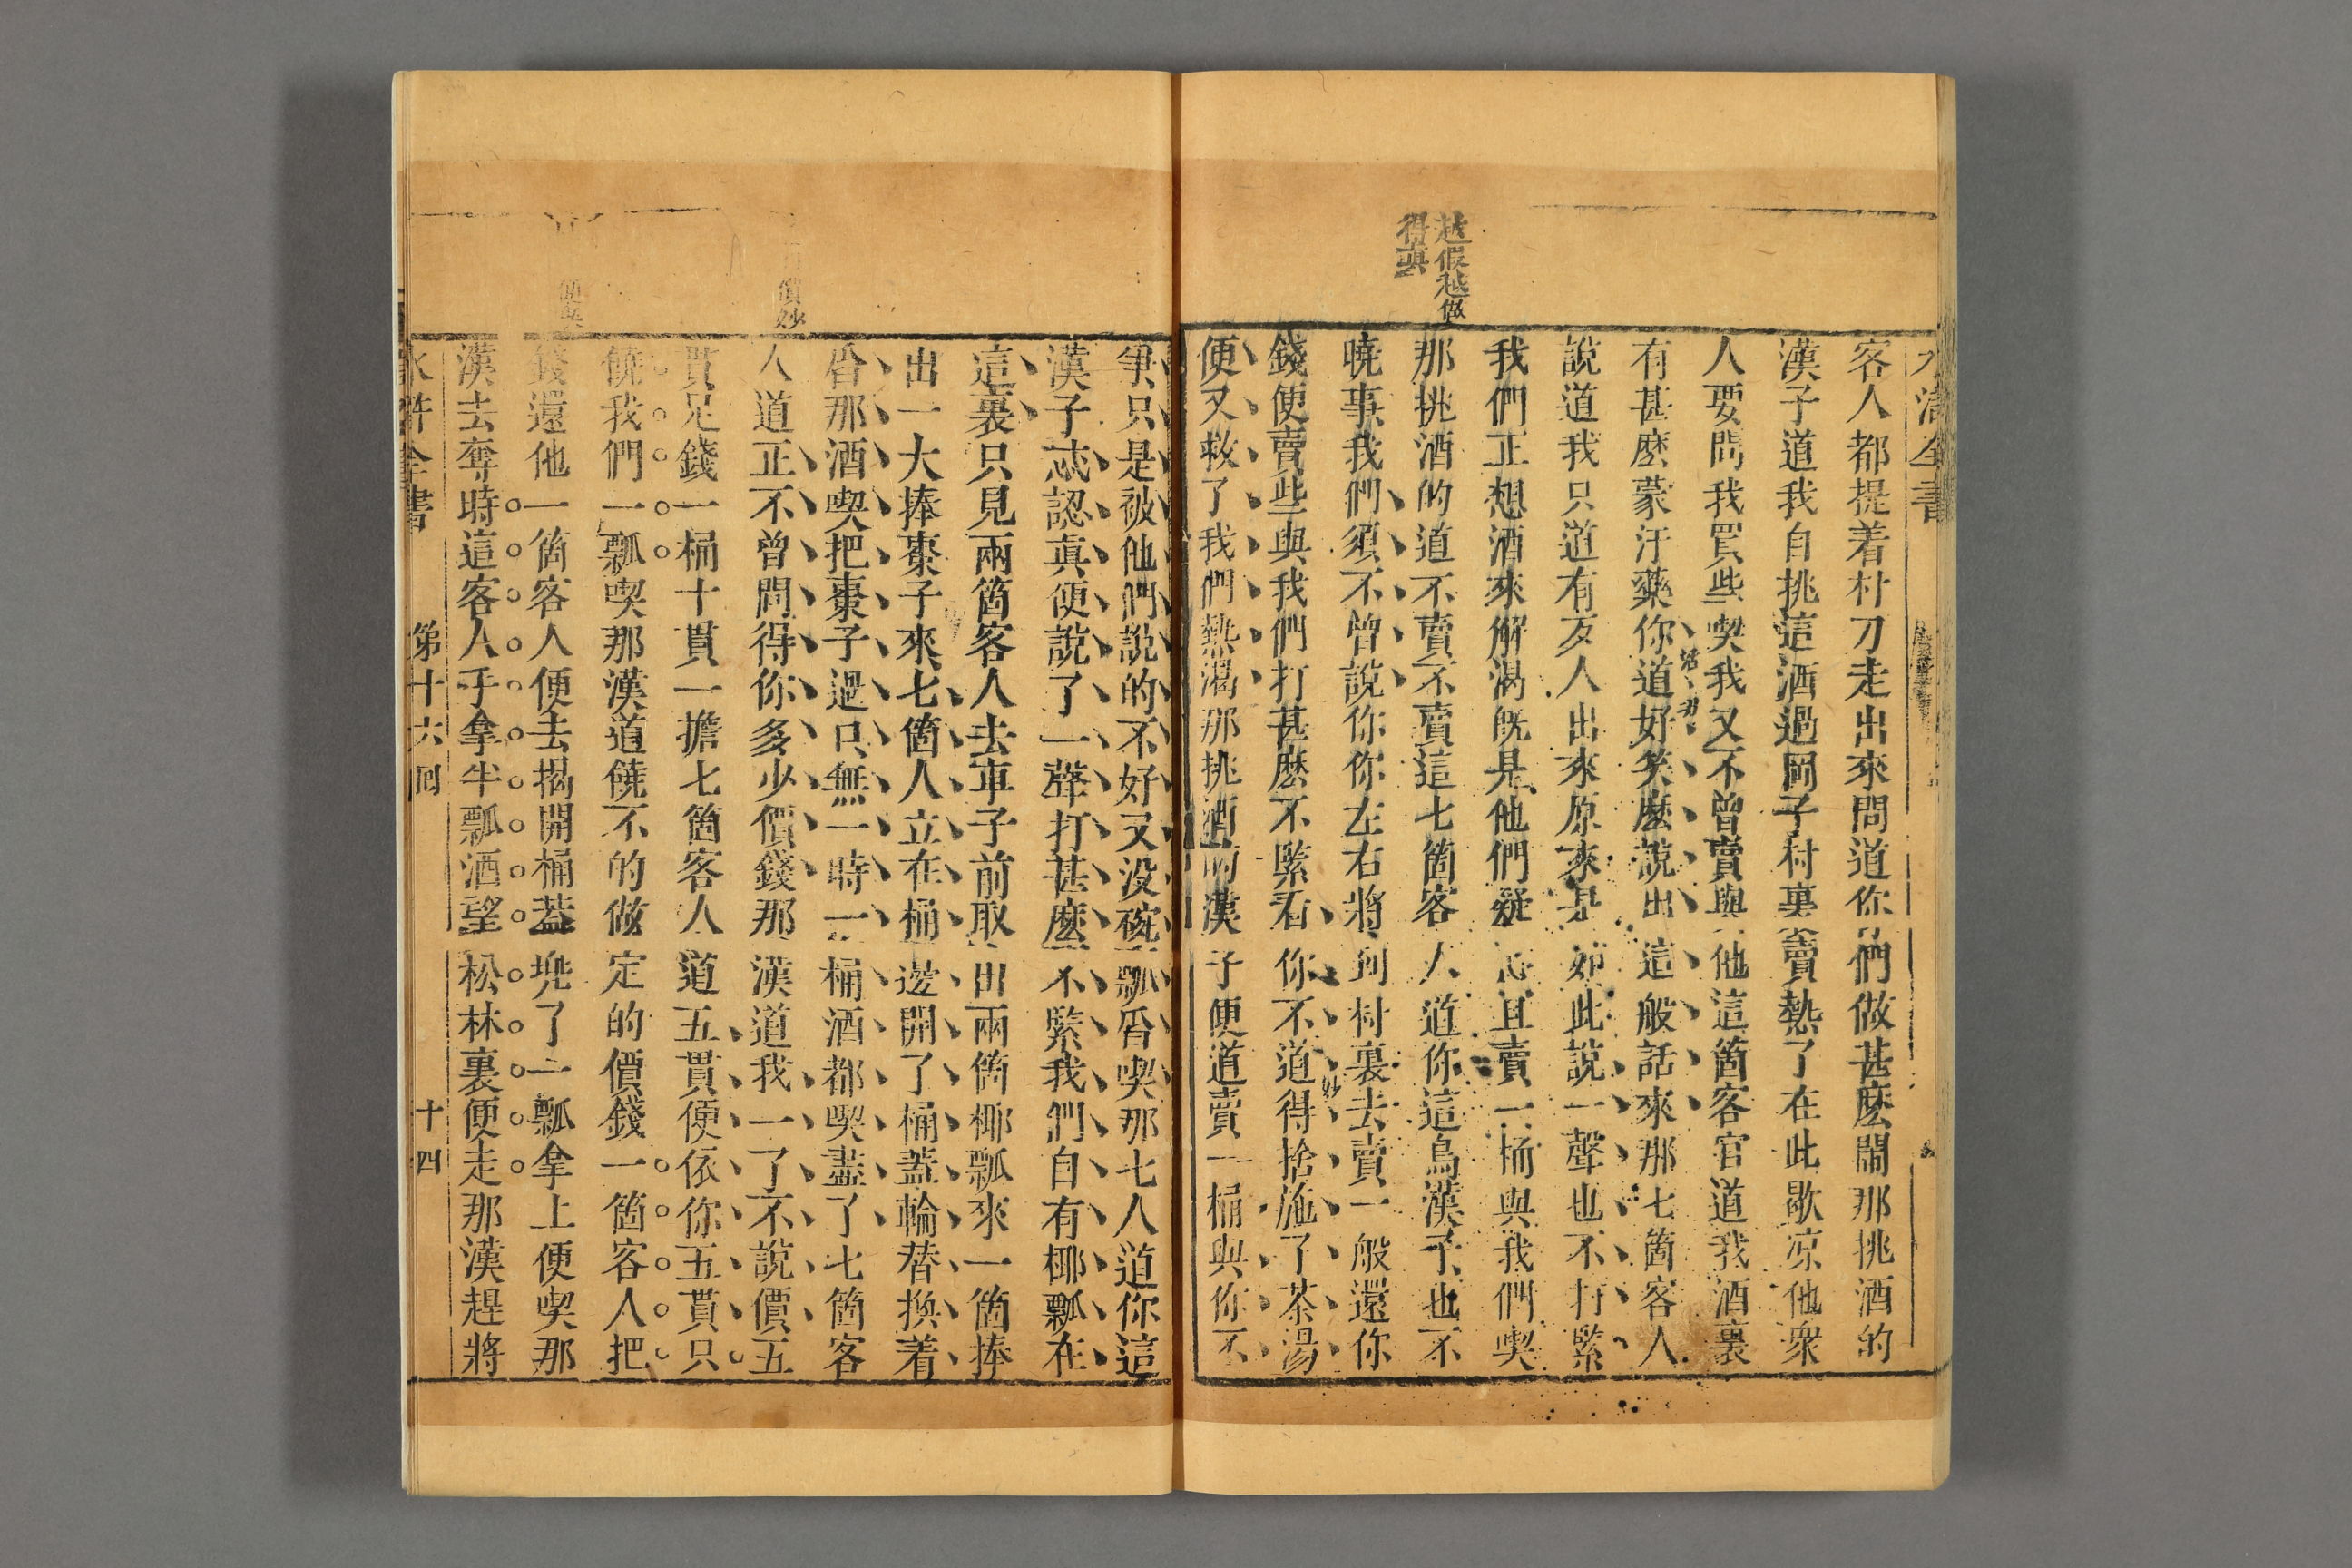 水滸全書
客人都提着朴刀走出來問道你們做甚麽鬧那挑酒的
漢子道我自挑這酒過岡子村裏賣熱了在此歇凉他衆
人要問我買些喫我又不曾賣與他這箇客官道我酒裏
有甚麽蒙汗藥你道好笑麽說出這般話來那七箇客人
說道我只道有歹人出來原來是如此說一聲也不打緊
我們正想酒來解渴旣是他們疑心且賣一桶與我們喫
越假越做
得眞
那挑酒的道不賣不賣這七箇客人道你這鳥漢子也不
曉事我們須不曾說你你左右將到村裏去賣一般還你
錢便賣些與我們打甚麽不緊看你不道得捨施了茶湯
妙
便又救了我們熱渴那挑酒的漢子便道賣一桶與你不
爭只是被他們說的不好又没碗瓢舀喫那七人道你這
漢子忒認眞便說了一聲打甚麽不緊我們自有椰瓢在
這裏只見兩箇客人去車子前取出兩箇椰瓢來一箇捧
出一大捧棗子來七箇人立在桶邊開了桶蓋輪替換着
舀那酒喫把棗子過口無一時一桶酒都喫盡了七箇客
價妙
人道正不曾問得你多少價錢那漢道我一了不說價五
貫足錢一桶十貫一擔七箇客人道五貫便依你五貫只
饒我們一瓢喫那漢道饒不的做定的價錢一箇客人把
錢還他一箇客人便去揭開桶蓋兜了一瓢拿上便喫那
漢去奪時這客人手拿半瓢酒望松林裏便走那漢趕將
水滸全書
第十六回
十四